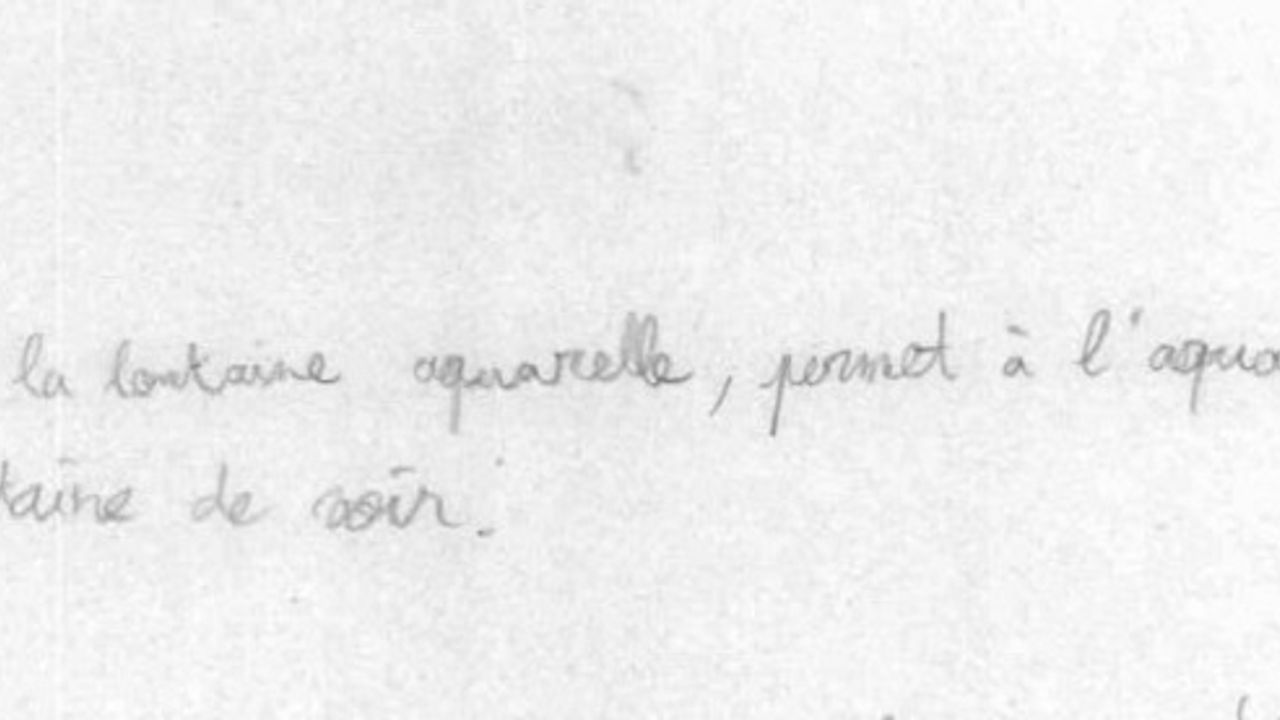 la lontaine aquarelle, permet à l'aqua
taine de soir.